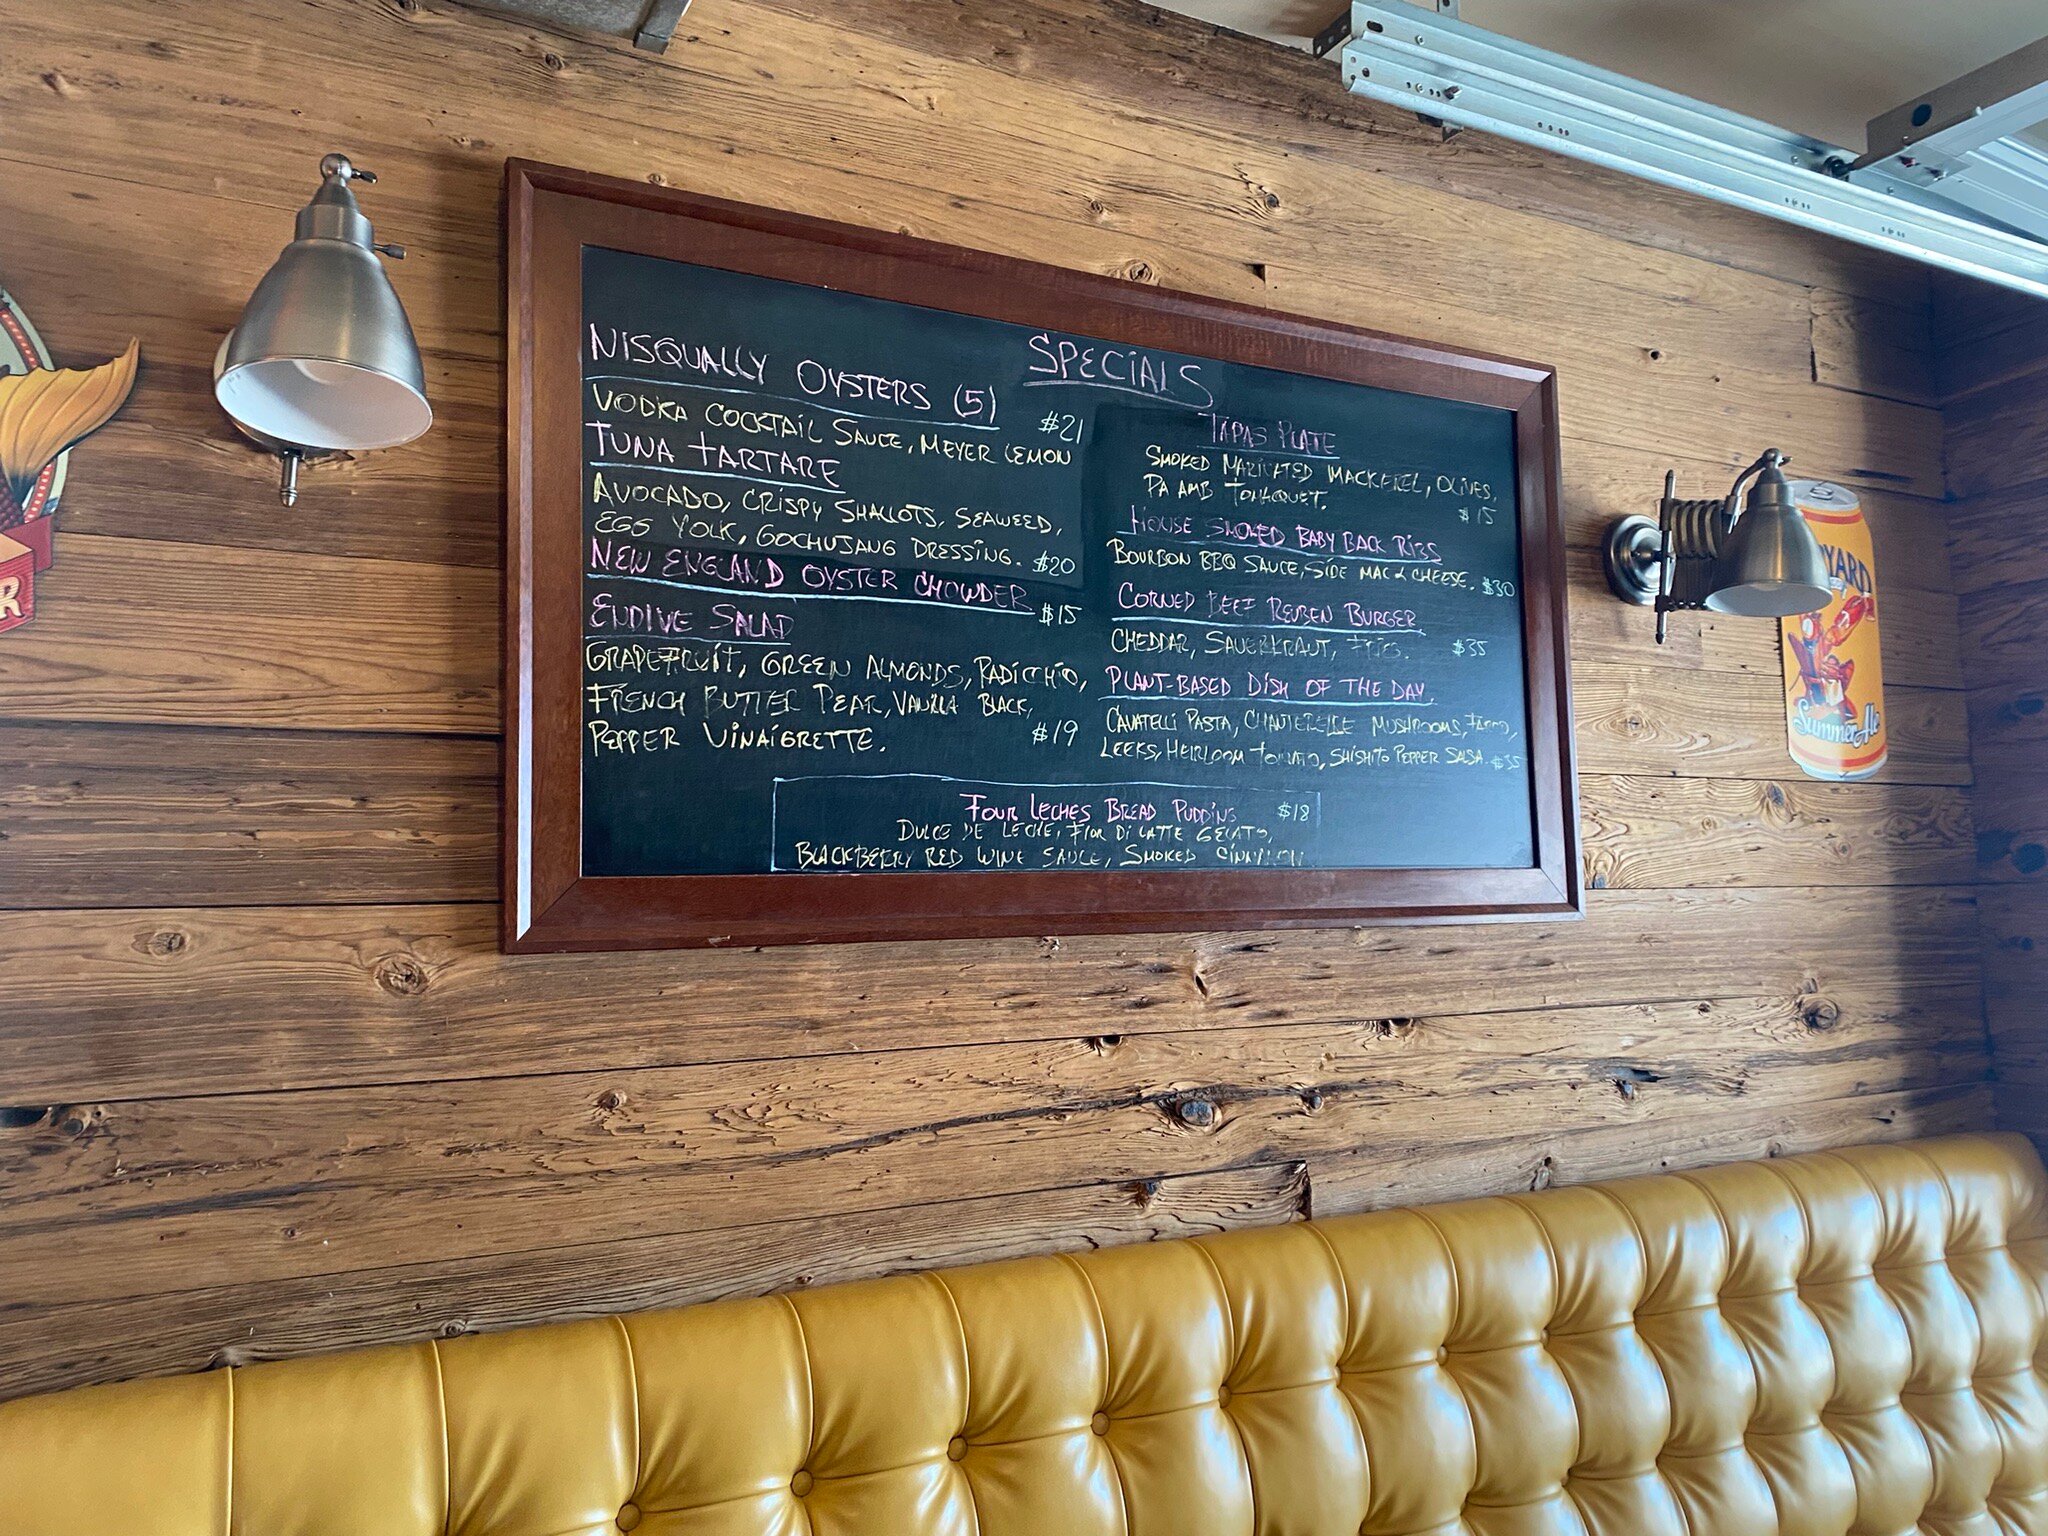 SPECIALS
NISQUALLY OYSTERS (5)
VODKA COCKTAIL SAUCE, MEYER LEMON $21
TUNA TARTARE
AVOCADO, CRISPY SHALLOTS, SEAWEED,
EGG YOLK, GOCHUJANG DRESSING. $20
NEW ENGLAND OYSTER CHOWDER $15
ENDIVE SALAD
GRAPEFRUIT, GREEN ALMONDS, RADICCHIO,
FRENCH BUTTER PEAR, VANILLA BLACK,
PEPPER VINAIGRETTE. $19
TAPAS PLATE
SMOKED MARINATED MACKEREL, OLIVES,
PA AMB TOMAQUET. $15
HOUSE SMOKED BABY BACK RIBS
BOURBON BBQ SAUCE, SIDE MAC & CHEESE. $30
CORNED BEEF REUBEN BURGER
CHEDDAR, SAUERKRAUT, FRIES. $35
PLANT-BASED DISH OF THE DAY.
CAVATELLI PASTA, CHANTERELLE MUSHROOMS,
LEEKS, HEIRLOOM TOMATO, SHISHITO PEPPER SALSA. $35
FOUR LECHES BREAD PUDDING $18
DULCE DE LECHE, FIOR DI LATTE GELATO,
BLACKBERRY RED WINE SAUCE, SMOKED CINNAMON
YARD
Summer Ale
R